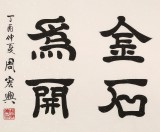 金石
為開
丁酉仲夏
周宏興